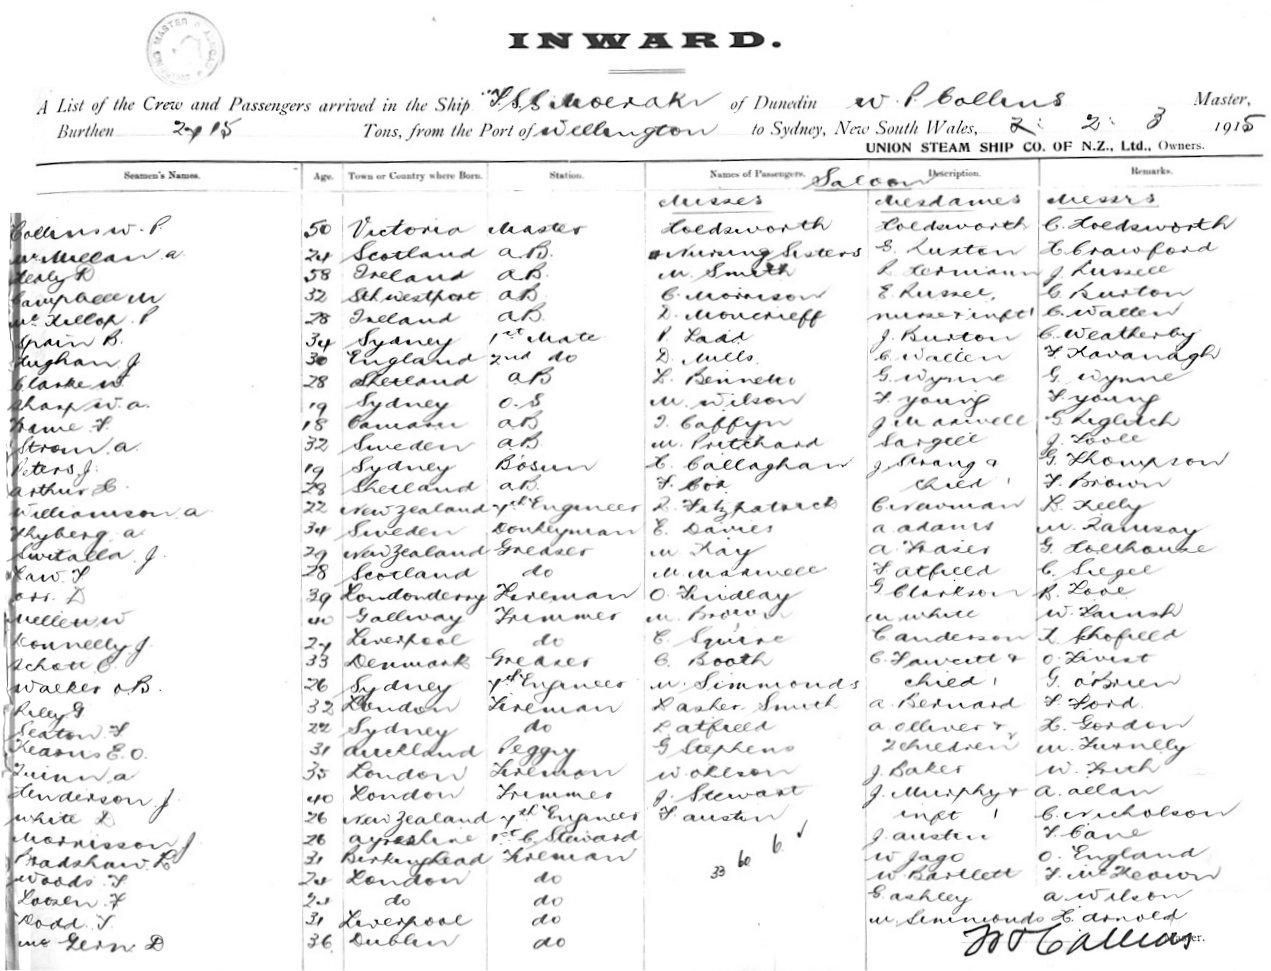 INWARD.
A List of the Crew and Passengers arrived in the Ship T.S.S. Moeraki of Dunedin W. P. Collins Master,
Burthen Tons, from the Port of Wellington to Sydney, New South Wales, 2 3 1915
UNION STEAM SHIP CO. OF N.Z., Ltd., Owners.
Seamen's Names. Age. Town or Country where Born. Station. Names of Passengers. Saloon Description. Remarks.
Misses Mesdames Messrs
Collins W. P. 50 Victoria Master Holdsworth Holdsworth C. Holdsworth
McMillan A. 24 Scotland A.B. Nursing Sisters E. Luxton H. Crawford
D 58 Ireland A.B. M. Smith L. Hermann J. Russell
Campbell M 32 A.B. C. Morrison E. Russel, G. Burton
McKillop P 28 Ireland A.B. D. Moncrieff nurse + inft 1 C. Wallen
Spain B. 34 Sydney 1st Mate P. Ladd J. Burton C. Weatherby
Hughan J 30 England 2nd do D. Mills C. Wallen F. Kavanagh
Clarke W 28 Shetland A.B. L. Bennett G. Wynne G. Wynne
Sharp W. A. 19 Sydney O.S. M. Wilson F. Young F. Young
F. 18 A.B. J. Caffyn J. Maxwell G.
Strom A. 32 Sweden A.B. M. Pritchard Sargell J. Toole
Peters J. 19 Sydney Bosun H. Callaghan J. Strang & G. Thompson
Arthur H. 28 Shetland A.B. F. Cox child 1 F. Brown
Williamson A 22 New Zealand Engineer L. Fitzpatrick C. Newman L. Kelly
Thyberg A 34 Sweden Donkeyman E. Davies A. Adams M. Ramsay
Switalla J. 29 New Zealand Greaser M. Kay A. Fraser G.
Law T 28 Scotland do M. Maxwell F. Atfield C. Siegel
Orr. D 39 Londonderry Fireman O. Findlay G. Clarkson R. Love
W 40 Galloway Trimmer M. Brown M. White W.
Donnelly J. 24 Liverpool do E. Squire C. Anderson L. Schofield
Schou C. 33 Denmark Greaser C. Booth C. Fawcett & O.
Walker O.B. 26 Sydney Engineer M. Simmonds child 1 G. O'Brien
Riley G 32 London Fireman Dasher Smith A. Bernard F. Ford.
Seaton F 22 Sydney do L. Atfield A. Olliver & H. Gordon
Kearns E. O. 31 Auckland Peggy G Stephens 2 children M.
Quinn A 35 London Fireman W. Ohlson J. Baker W.
Henderson J. 40 London Trimmer J. Stewart J. Murphy & A. Allan
White D 26 New Zealand Engineer F. Austen inft 1 C. Nicholson
Morrisson J 26 Ayrshire 1st C. Steward J. Austen F. Cane
Bradshaw H 31 Birkenhead Fireman 33 60 6 W. Jago O. England
Woods T 24 London do W. Bartlett F. McKeown
Loosen F 24 do do E. Ashley A. Wilson
Dodd. T. 31 Liverpool do M. Simmonds H. Arnold
Mc D 36 Dublin do W P Collins Master.